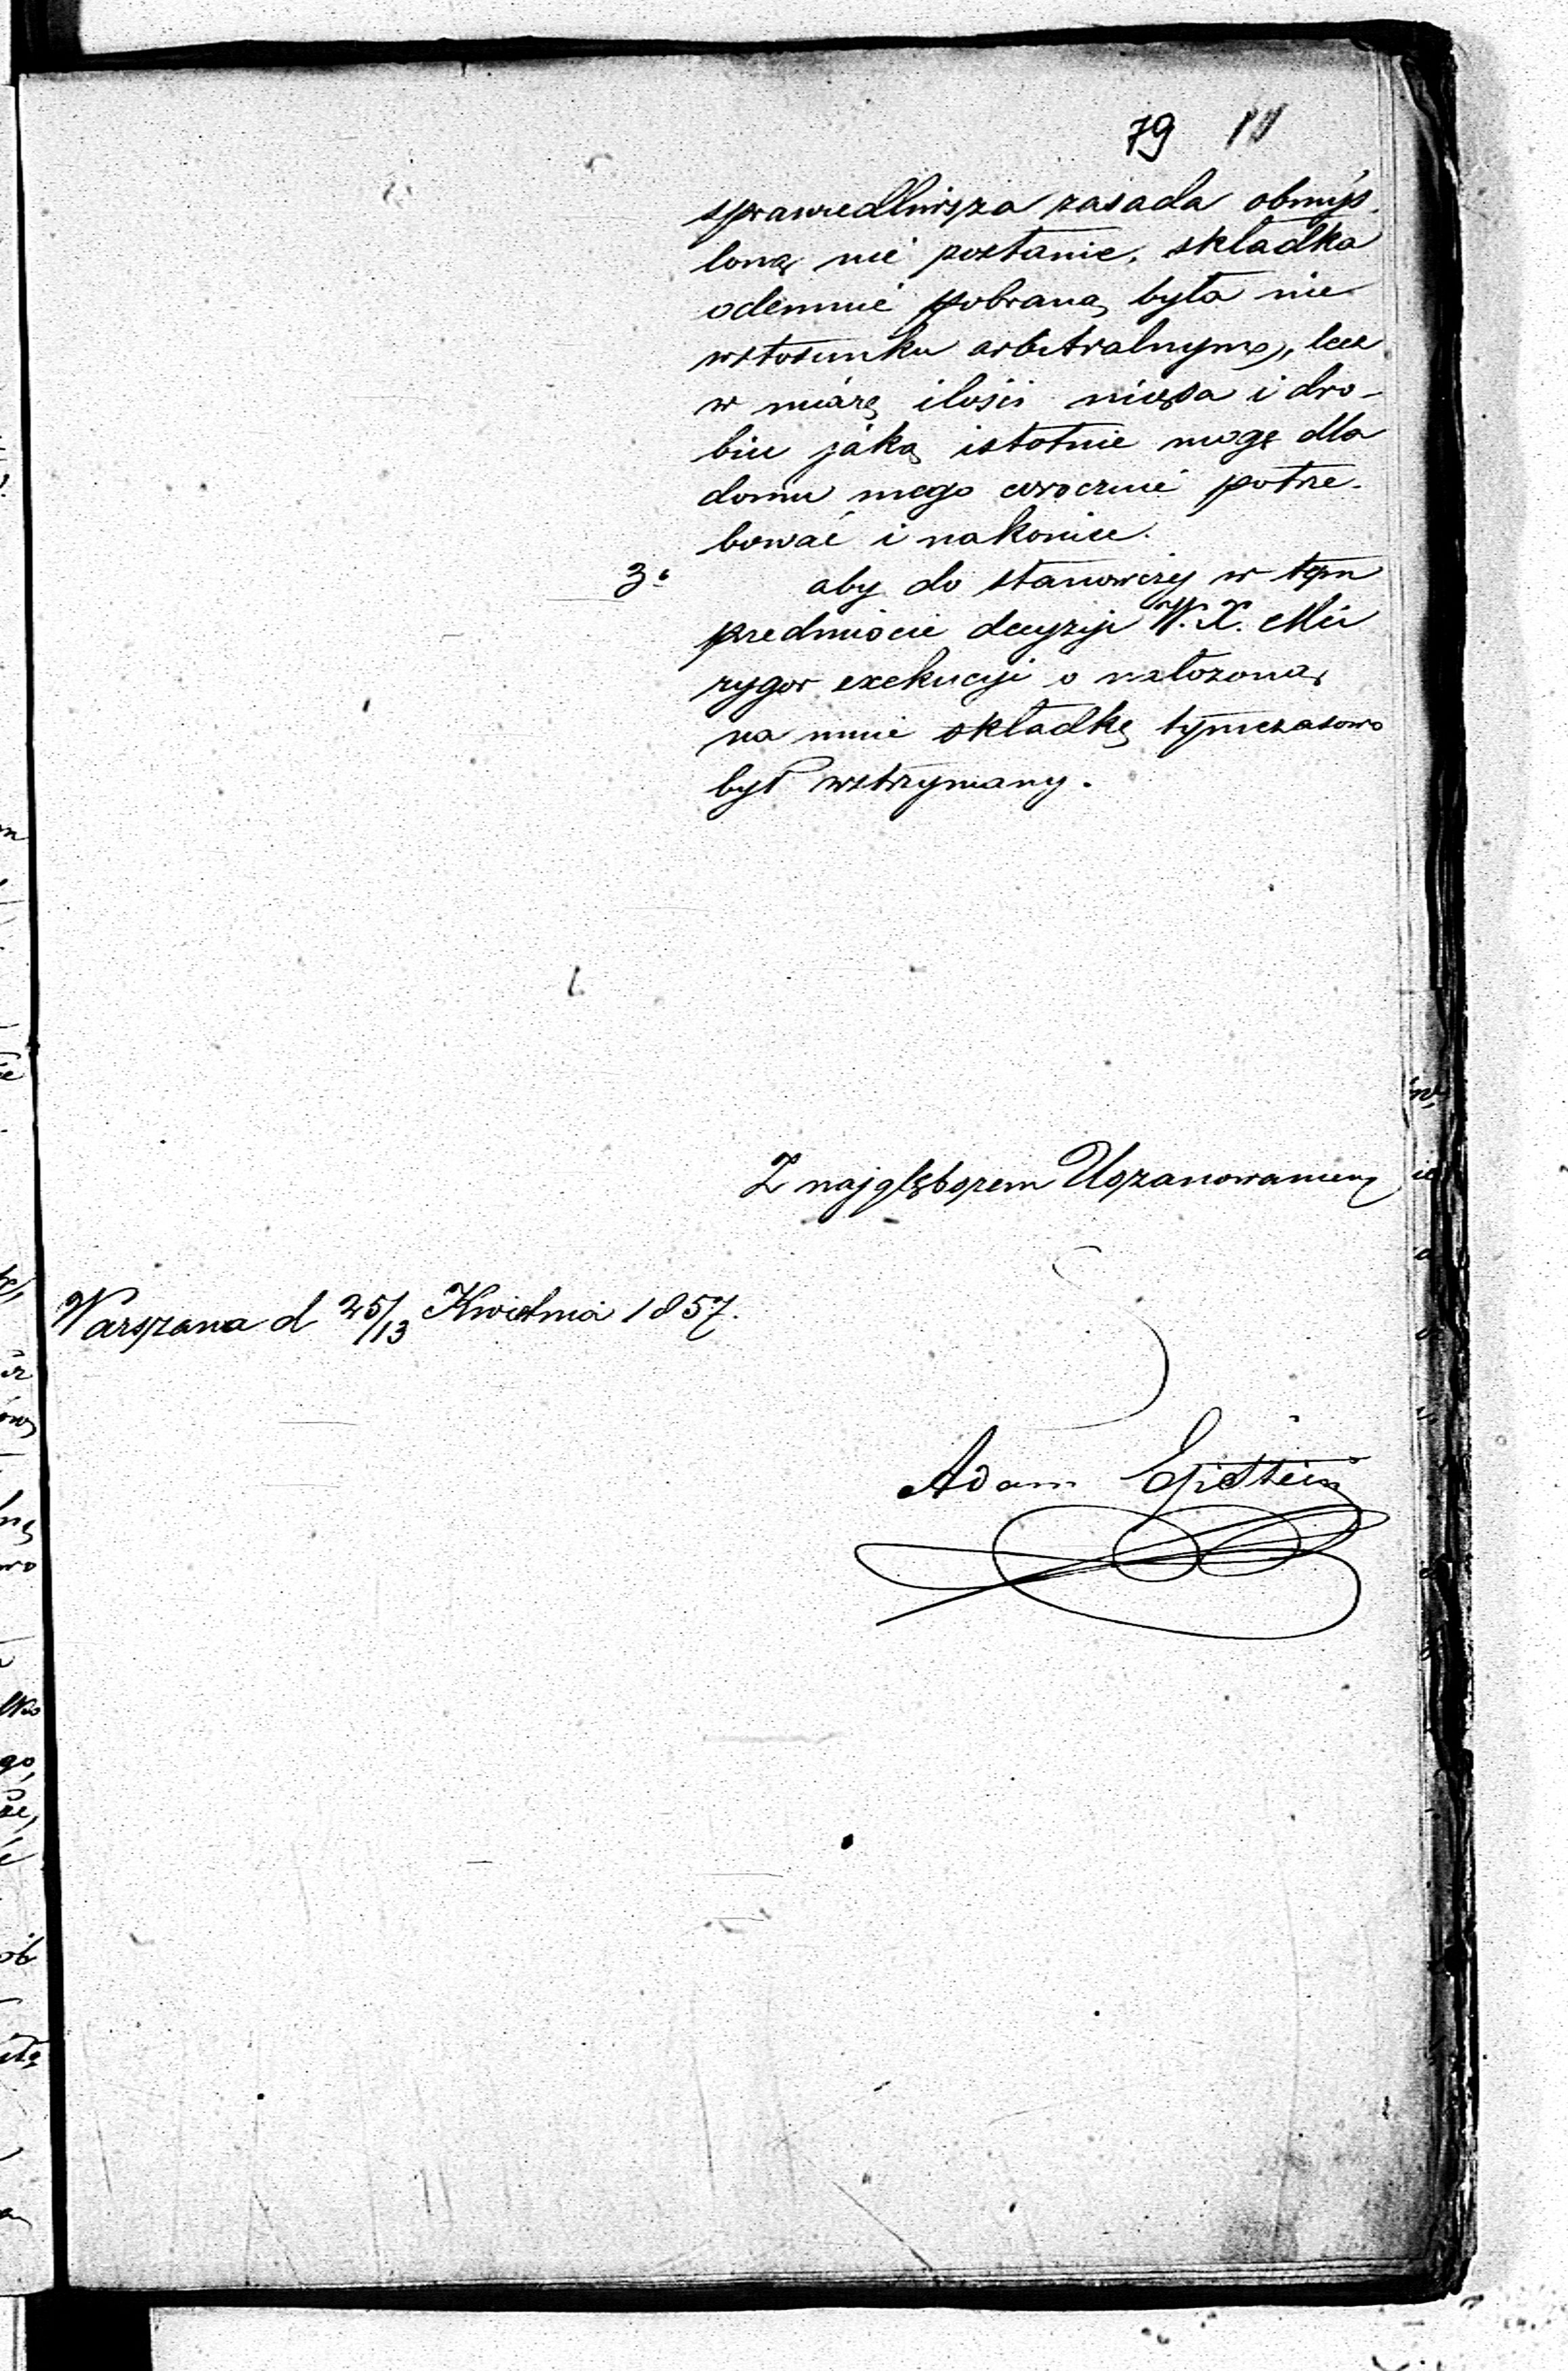 79
sprawiedliwsza zasada obmyś-
loną nie zostanie, składka
odemnie pobraną była nie
wstosunku arbitralnym, lecz
w miarę ilości mięsa i dro-
biu jaką istotnie mogę dla
domu mego corocznie potrze-
bować i nakoniec.
3º aby do stanowczej w tym
przedmiocie decyzji W. X. Mci
rygor exekucji o nałożoną
na mnie składkę tymczasowo
był wstrzymany.
Z najgłębszem Uszanowaniem
Warszawa d 25/13 Kwietnia 1857.
Adam Epstein